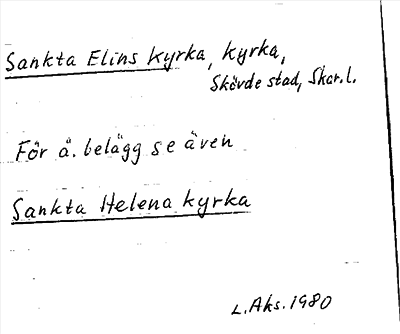 Sankta Elins kyrka, kyrka,
Skövde stad, Skar.l.
För ä. belägg se även
Sankta Helena kyrka
L.Aks.1980